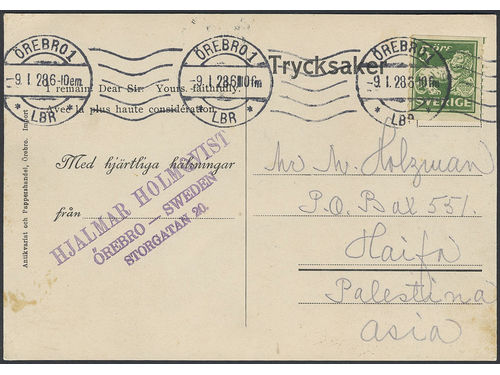 ÖREBRO 1
-9.1.28 6-10em.
* LBR *
ÖREBRO 1
LBR *
ÖREBRO 1
* LBR
Trycksaker
5 ÖRE
SVERIGE
I remain, Dear Sir. Yours faithfully.
Avec la plus haute considération.
Med hjärtliga hälsningar
från
HJALMAR HOLMQVIST
ÖREBRO — SWEDEN
STORGATAN 20.
Antikvariat och Pappershandel, Örebro. Import
Mr M. Holzman
P.O. Box 551.
Haifa
Palestina
Asia